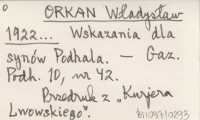 ORKAN Władysław
1922... Wskazania dla
synów Podhala. — Gaz.
Podh. 10, nr 42.
Przedruk z „Kurjera
Lwowskiego".